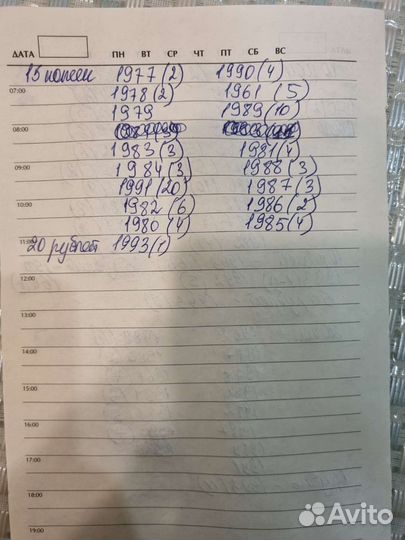 ДАТА ПН ВТ СР ЧТ ПТ СБ ВС
15 копеек 1977 (2) 1990 (4)
07:00
1978 (2) 1961 (5)
1979 1989 (10)
08:00
1983 (3) 1981 (4)
09:00
1984 (3) 1988 (3)
1991 (20) 1987 (3)
10:00
1982 (6) 1986 (2)
1980 (4) 1985 (4)
11:00
20 рублей 1993 (1)
12:00
13:00
14:00
15:00
16:00
17:00
18:00
19:00
Avito